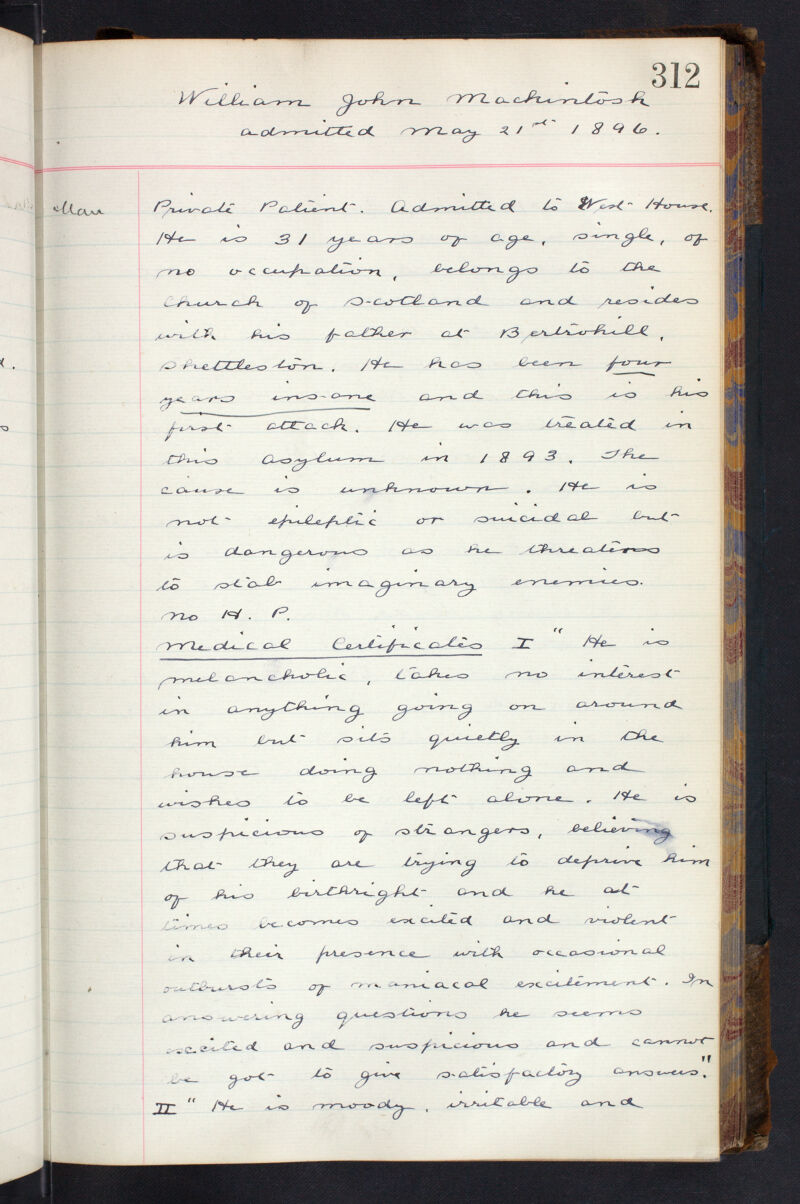 312
William John Mackintosh
admitted May 21st 1896.
Private Patient. Admitted to West House.
He is 31 years of age, single, of
no occupation, belongs to the
Church of Scotland and resides
with his father at Bertrohill,
Shettleston. He has been four
years insane and this is his
first attack. He was treated in
this asylum in 1893. The
cause is unknown. He is
not epileptic or suicidal but
is dangerous as he threatens
to stab imaginary enemies.
No H. P.
Medical Certificates I "He is
melancholic, takes no interest
in anything going on around
him but sits quietly in the
house doing nothing and
wishes to be left alone. He is
suspicious of strangers, believing
that they are trying to deprive him
of his birthright and he at
times becomes excited and violent
in their presence with occasional
outbursts of maniacal excitement. In
answering questions he seems
excited and suspicious and cannot
be got to give satisfactory answers."
II "He is moody, irritable and